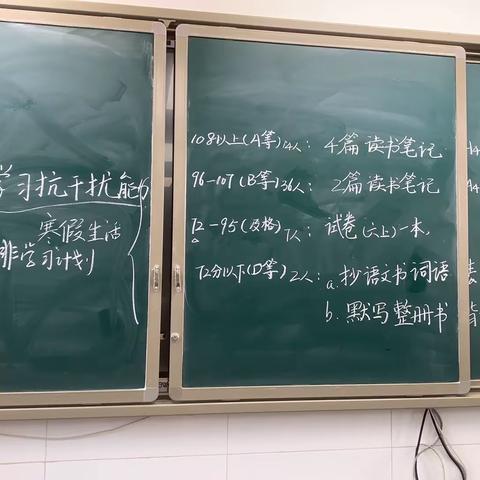 学习抗干扰能力
寒假生活
非学习计划
108以上(A等)14人: 4篇读书笔记
96-107(B等)36人: 2篇读书笔记
72-95(及格)7人: 试卷(六上)一本,
72分以下(D等)2人: a.抄语文书词语
b.默写整册书